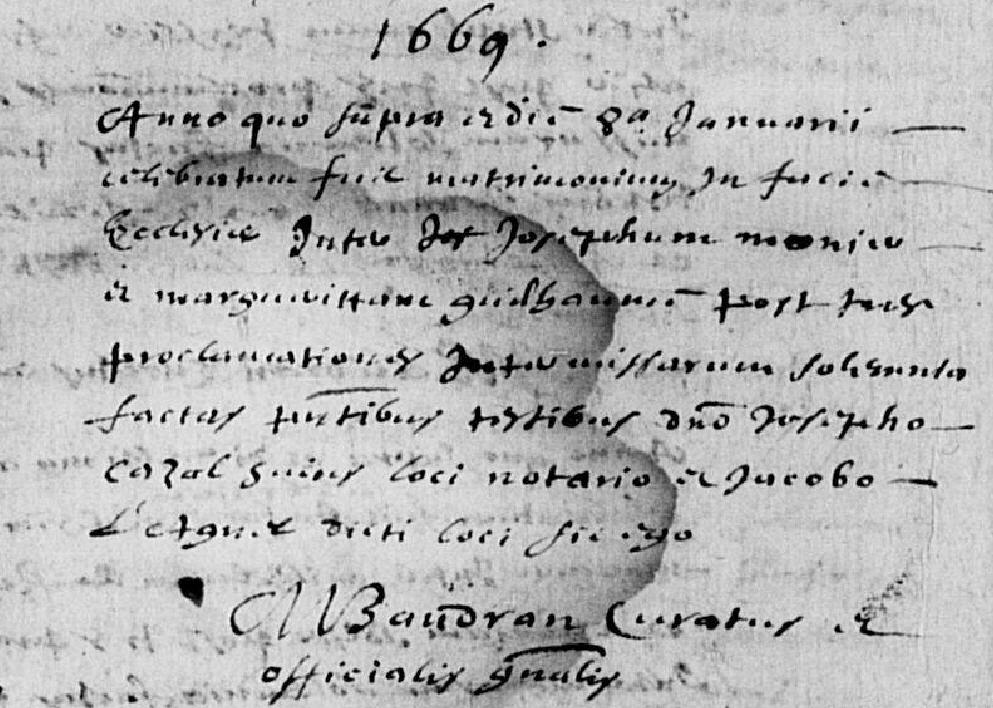 1669.
Anno quo supra et die 8a Januarii
celebratum fuit matrimonium In facie
Ecclesie Inter Josephum monier
et marguerittam guilhaume post tres
proclamationes Inter missarum solemnia
factas pntibus testibus dno Josepho
cazal huius loci notario et Jacobo
dicti loci sic ego
Baudran Curatus et
officialis gnalis